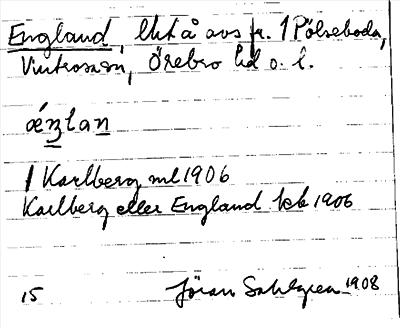 England lht å avs fr. 1 Pålsboda,
Vintrosa sn, Örebro hd o. l.
ǽŋlan
1 Karlberg ml 1906
Karlberg eller England keb 1906
15 Jöran Sahlgren 1908